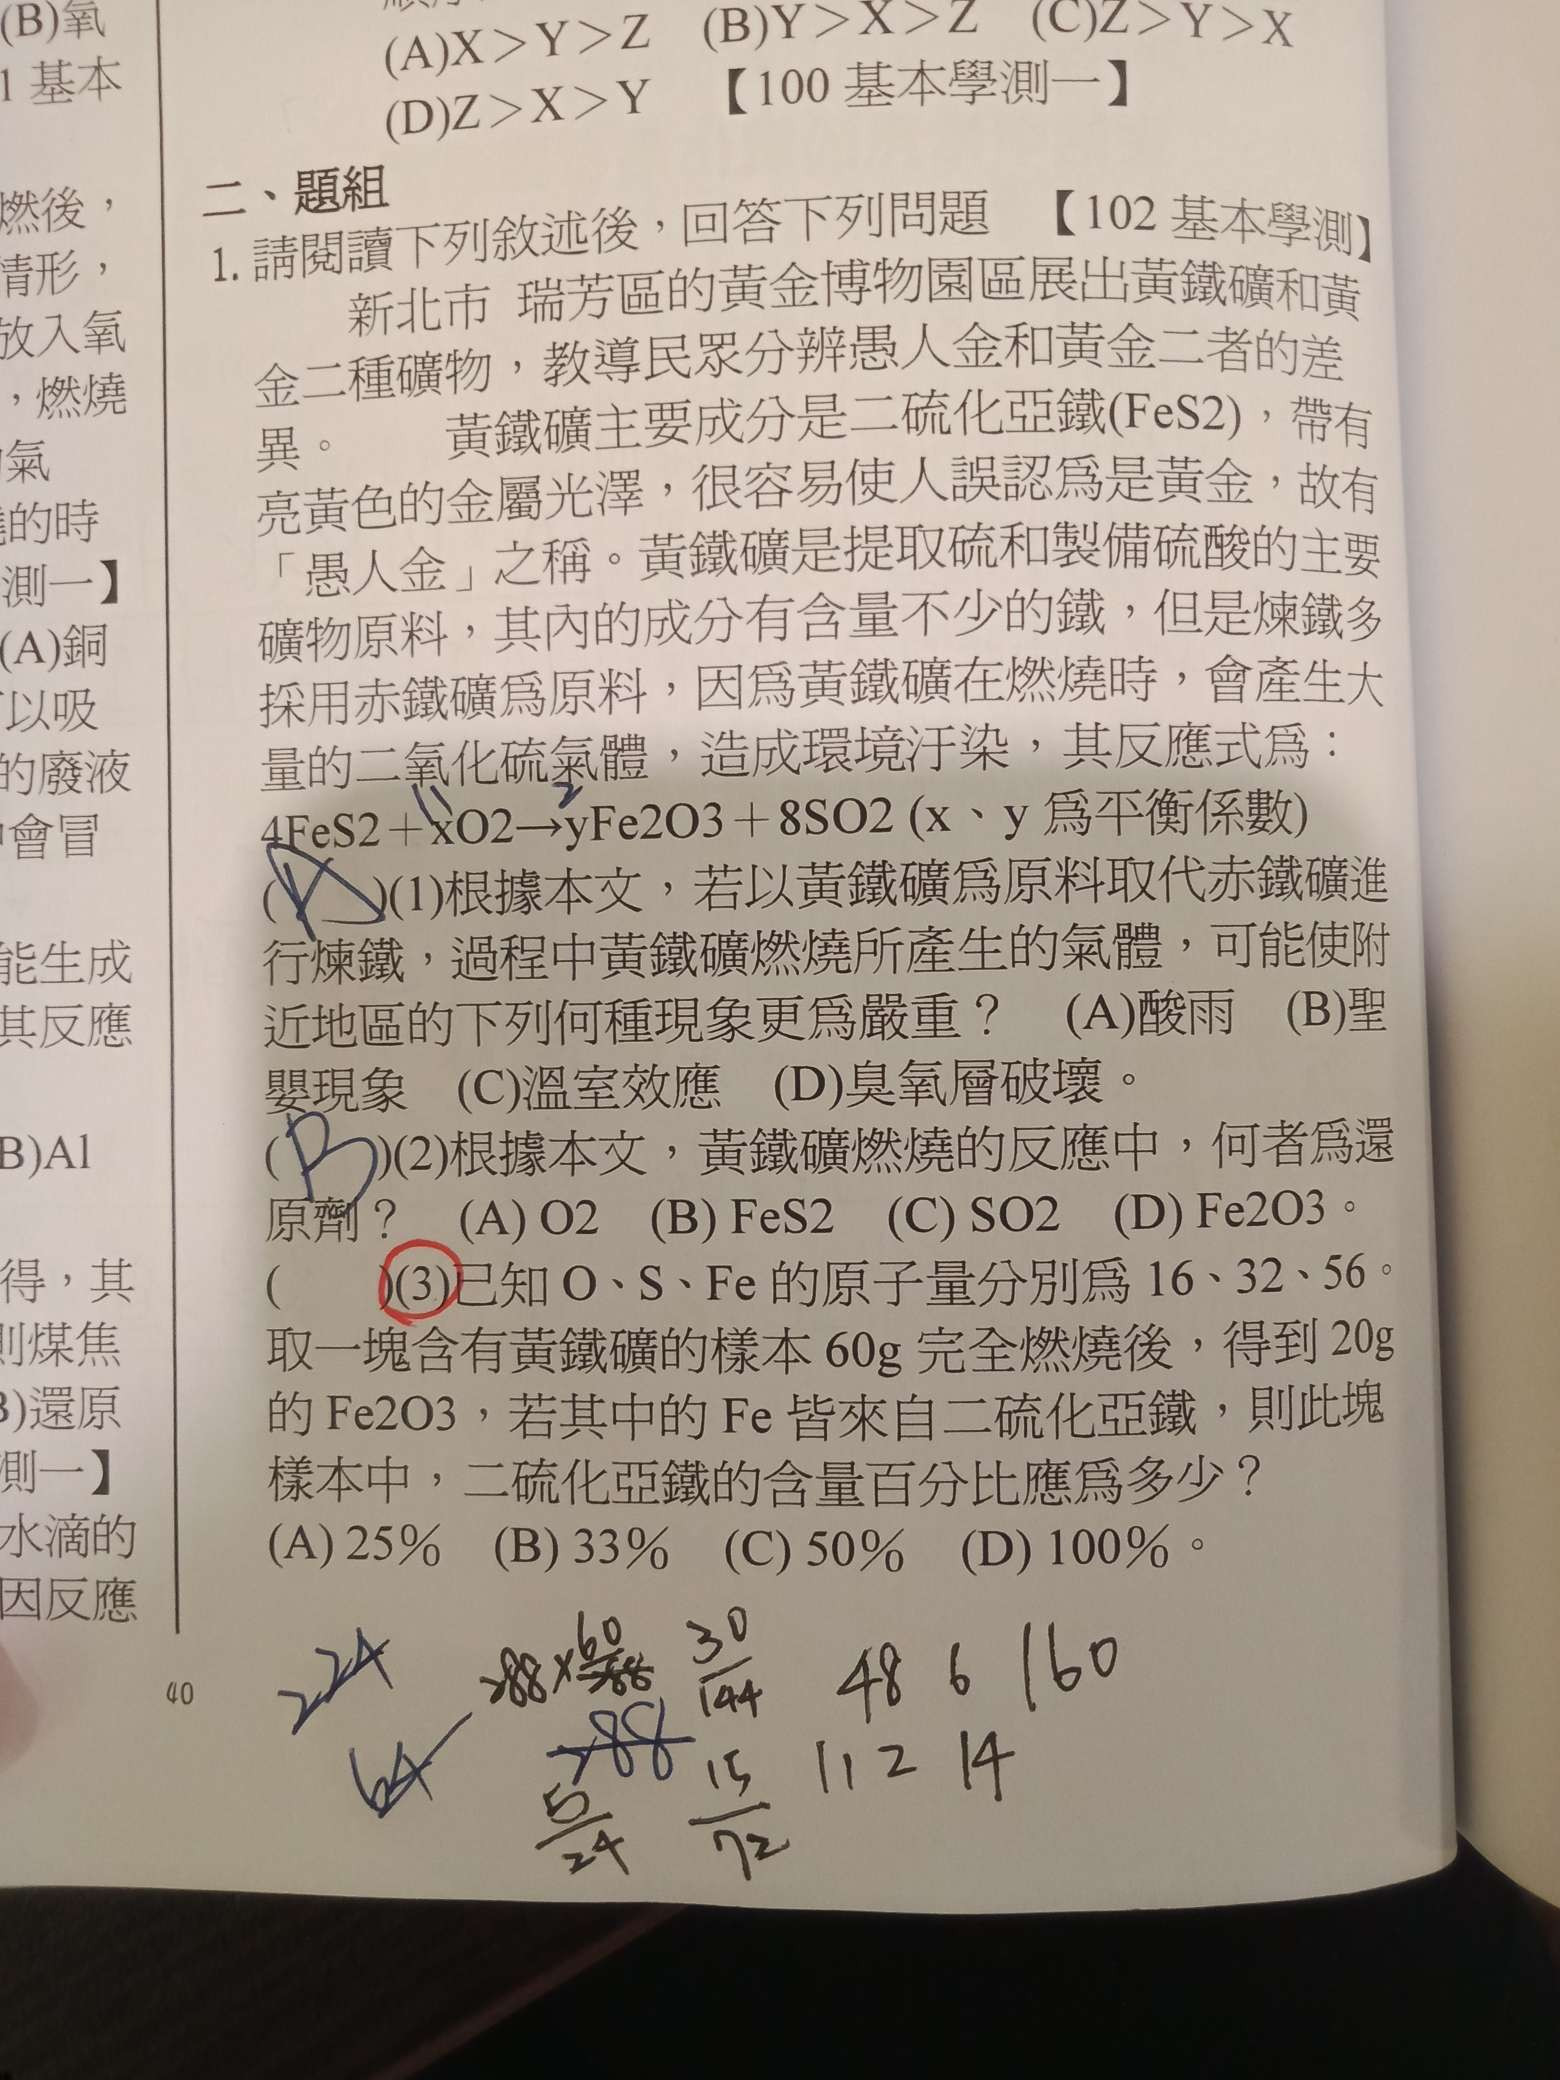 (B)氧
1 基本
燃後，
情形，
放入氧
，燃燒
氣
的時
測一】
(A)銅
以吸
的廢液
會冒
能生成
其反應
B)Al
得，其
則煤焦
B)還原
測一】
水滴的
因反應
(A)X＞Y＞Z (B)Y＞X＞Z (C)Z＞Y＞X
(D)Z＞X＞Y 【100 基本學測一】
二、題組
1. 請閱讀下列敘述後，回答下列問題 【102 基本學測】
新北市 瑞芳區的黃金博物園區展出黃鐵礦和黃
金二種礦物，教導民眾分辨愚人金和黃金二者的差
異。 黃鐵礦主要成分是二硫化亞鐵(FeS2)，帶有
亮黃色的金屬光澤，很容易使人誤認為是黃金，故有
「愚人金」之稱。黃鐵礦是提取硫和製備硫酸的主要
礦物原料，其內的成分有含量不少的鐵，但是煉鐵多
採用赤鐵礦為原料，因為黃鐵礦在燃燒時，會產生大
量的二氧化硫氣體，造成環境汙染，其反應式為：
11 2
4FeS2＋xO2→yFe2O3＋8SO2 (x、y 為平衡係數)
( A )(1)根據本文，若以黃鐵礦為原料取代赤鐵礦進
行煉鐵，過程中黃鐵礦燃燒所產生的氣體，可能使附
近地區的下列何種現象更為嚴重？ (A)酸雨 (B)聖
嬰現象 (C)溫室效應 (D)臭氧層破壞。
( B )(2)根據本文，黃鐵礦燃燒的反應中，何者為還
原劑？ (A) O2 (B) FeS2 (C) SO2 (D) Fe2O3。
( )(3)已知 O、S、Fe 的原子量分別為 16、32、56。
取一塊含有黃鐵礦的樣本 60g 完全燃燒後，得到 20g
的 Fe2O3，若其中的 Fe 皆來自二硫化亞鐵，則此塊
樣本中，二硫化亞鐵的含量百分比應為多少？
(A) 25％ (B) 33％ (C) 50％ (D) 100％。
40
224
64
288×60
288
30
144
48 6 160
15
72
112 14
5
24